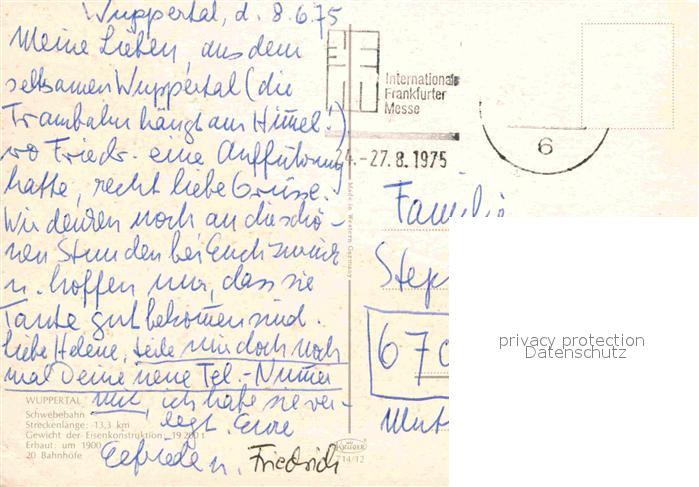 Wuppertal, d. 8.6.75
Meine Lieben, aus dem
seltsamen Wuppertal (die
Trambahn hängt am Himmel!)
wo Friedr. eine Aufführung
hatte, recht liebe Grüsse.
Wir denken noch an die schö-
nen Stunden bei Euch zurück
u. hoffen nur, dass sie
Tante gut bekommen sind.
Liebe Helene, teile mir doch noch
mal Deine neue Tel.-Numer
mit, ich habe sie ver-
legt. Eure
u. Friedrich
WUPPERTAL
Schwebebahn
Streckenlänge: 13,3 km
Gewicht der Eisenkonstruktion 19 200 t
Erbaut: um 1900
20 Bahnhöfe
Made in Western Germany
KRÜGER
714/12
Internationale
Frankfurter
Messe
24.-27.8.1975
6
Familie
670
privacy protection
Datenschutz